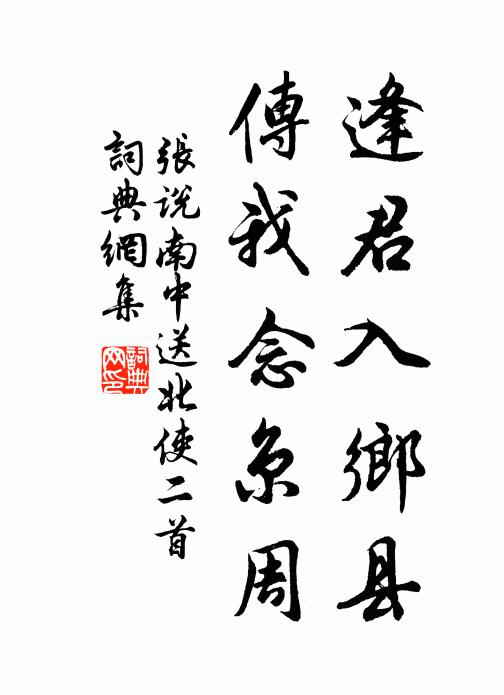 逢君入鄉县
傳我念京周
張説南中送北使二首
詞典網集
詞典网印